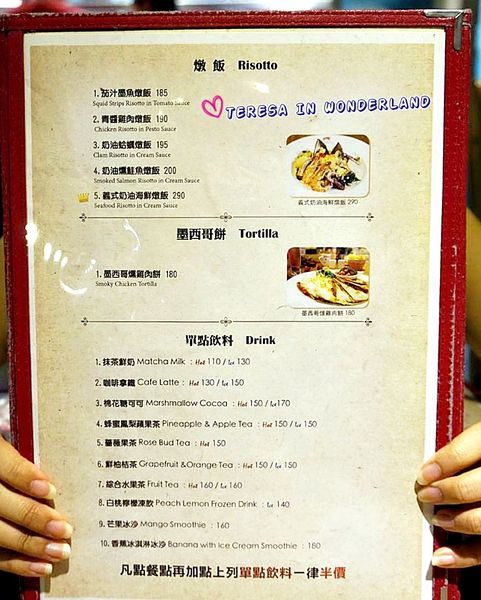 燉飯 Risotto
1. 茄汁墨魚燉飯 185
Squid Strips Risotto in Tomato Sauce
TERESA IN WONDERLAND
2. 青醬雞肉燉飯 190
Chicken Risotto in Pesto Sauce
3. 奶油蛤蠣燉飯 195
Clam Risotto in Cream Sauce
4. 奶油燻鮭魚燉飯 200
Smoked Salmon Risotto in Cream Sauce
5. 義式奶油海鮮燉飯 290
Seafood Risotto in Cream Sauce
義式奶油海鮮燉飯 290
墨西哥餅 Tortilla
1. 墨西哥燻雞肉餅 180
Smoky Chicken Tortilla
墨西哥燻雞肉餅 180
單點飲料 Drink
1. 抹茶鮮奶 Matcha Milk : Hot 110 / Ice 130
2. 咖啡拿鐵 Cafe Latte : Hot 130 / Ice 150
3. 棉花糖可可 Marshmallow Cocoa : Hot 150 / Ice 170
4. 蜂蜜鳳梨蘋果茶 Pineapple & Apple Tea : Hot 150 / Ice 150
5. 薔薇果茶 Rose Bud Tea : Hot 150
6. 鮮柚桔茶 Grapefruit &Orange Tea : Hot 150 / Ice 150
7. 綜合水果茶 Fruit Tea : Hot 160 / Ice 160
8. 白桃檸檬凍飲 Peach Lemon Frozen Drink : Ice 140
9. 芒果冰沙 Mango Smoothie : 160
10. 香蕉冰淇淋冰沙 Banana with Ice Cream Smoothie : 180
凡點餐點再加點上列單點飲料一律半價